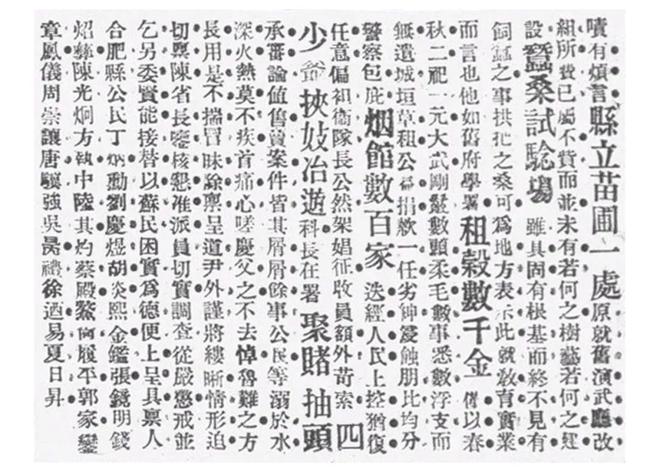 嘖有煩言縣立苗圃一處原就舊演武廳改
組所費已屬不貲而並未有若何之樹藝若何之建
設蠶桑試驗場雖具固有根基而終不見有
飼蠶之事拱把之桑可爲地方表示此就敎育實業
而言也他如舊府學署租穀數千金備以春
秋二祀一元大武剛鬣數頭柔毛數事悉數浮支而
無遺城垣草租公益捐欵一任劣紳浸蝕朋比均分
警察包庇烟館數百家迭經人民上控猶復
任意偏袒衛隊長公然架娼征收員額外苛索四
少爺挾妓冶遊科長在署聚賭抽頭
承審論値售賣案件皆其屑屑餘事公民等溺於水
深火熱莫不疾首痛心嗟慶父之不去悼魯難之方
長用是不揣冒昧除禀呈道尹外謹將縷晰情形追
切禀陳省長鑒核懇准派員切實調查從嚴懲戒並
乞另委賢能接替以蘇民困實爲德便上呈具禀人
合肥縣公民丁炳勳劉慶煜胡炎熙金鑑張鑄明錢
炤彝陳光炯方執中陸其灼蔡殿鰲何履平郭家鑾
章鳳儀周崇讓唐驤強吳禮徐迺易夏日昇